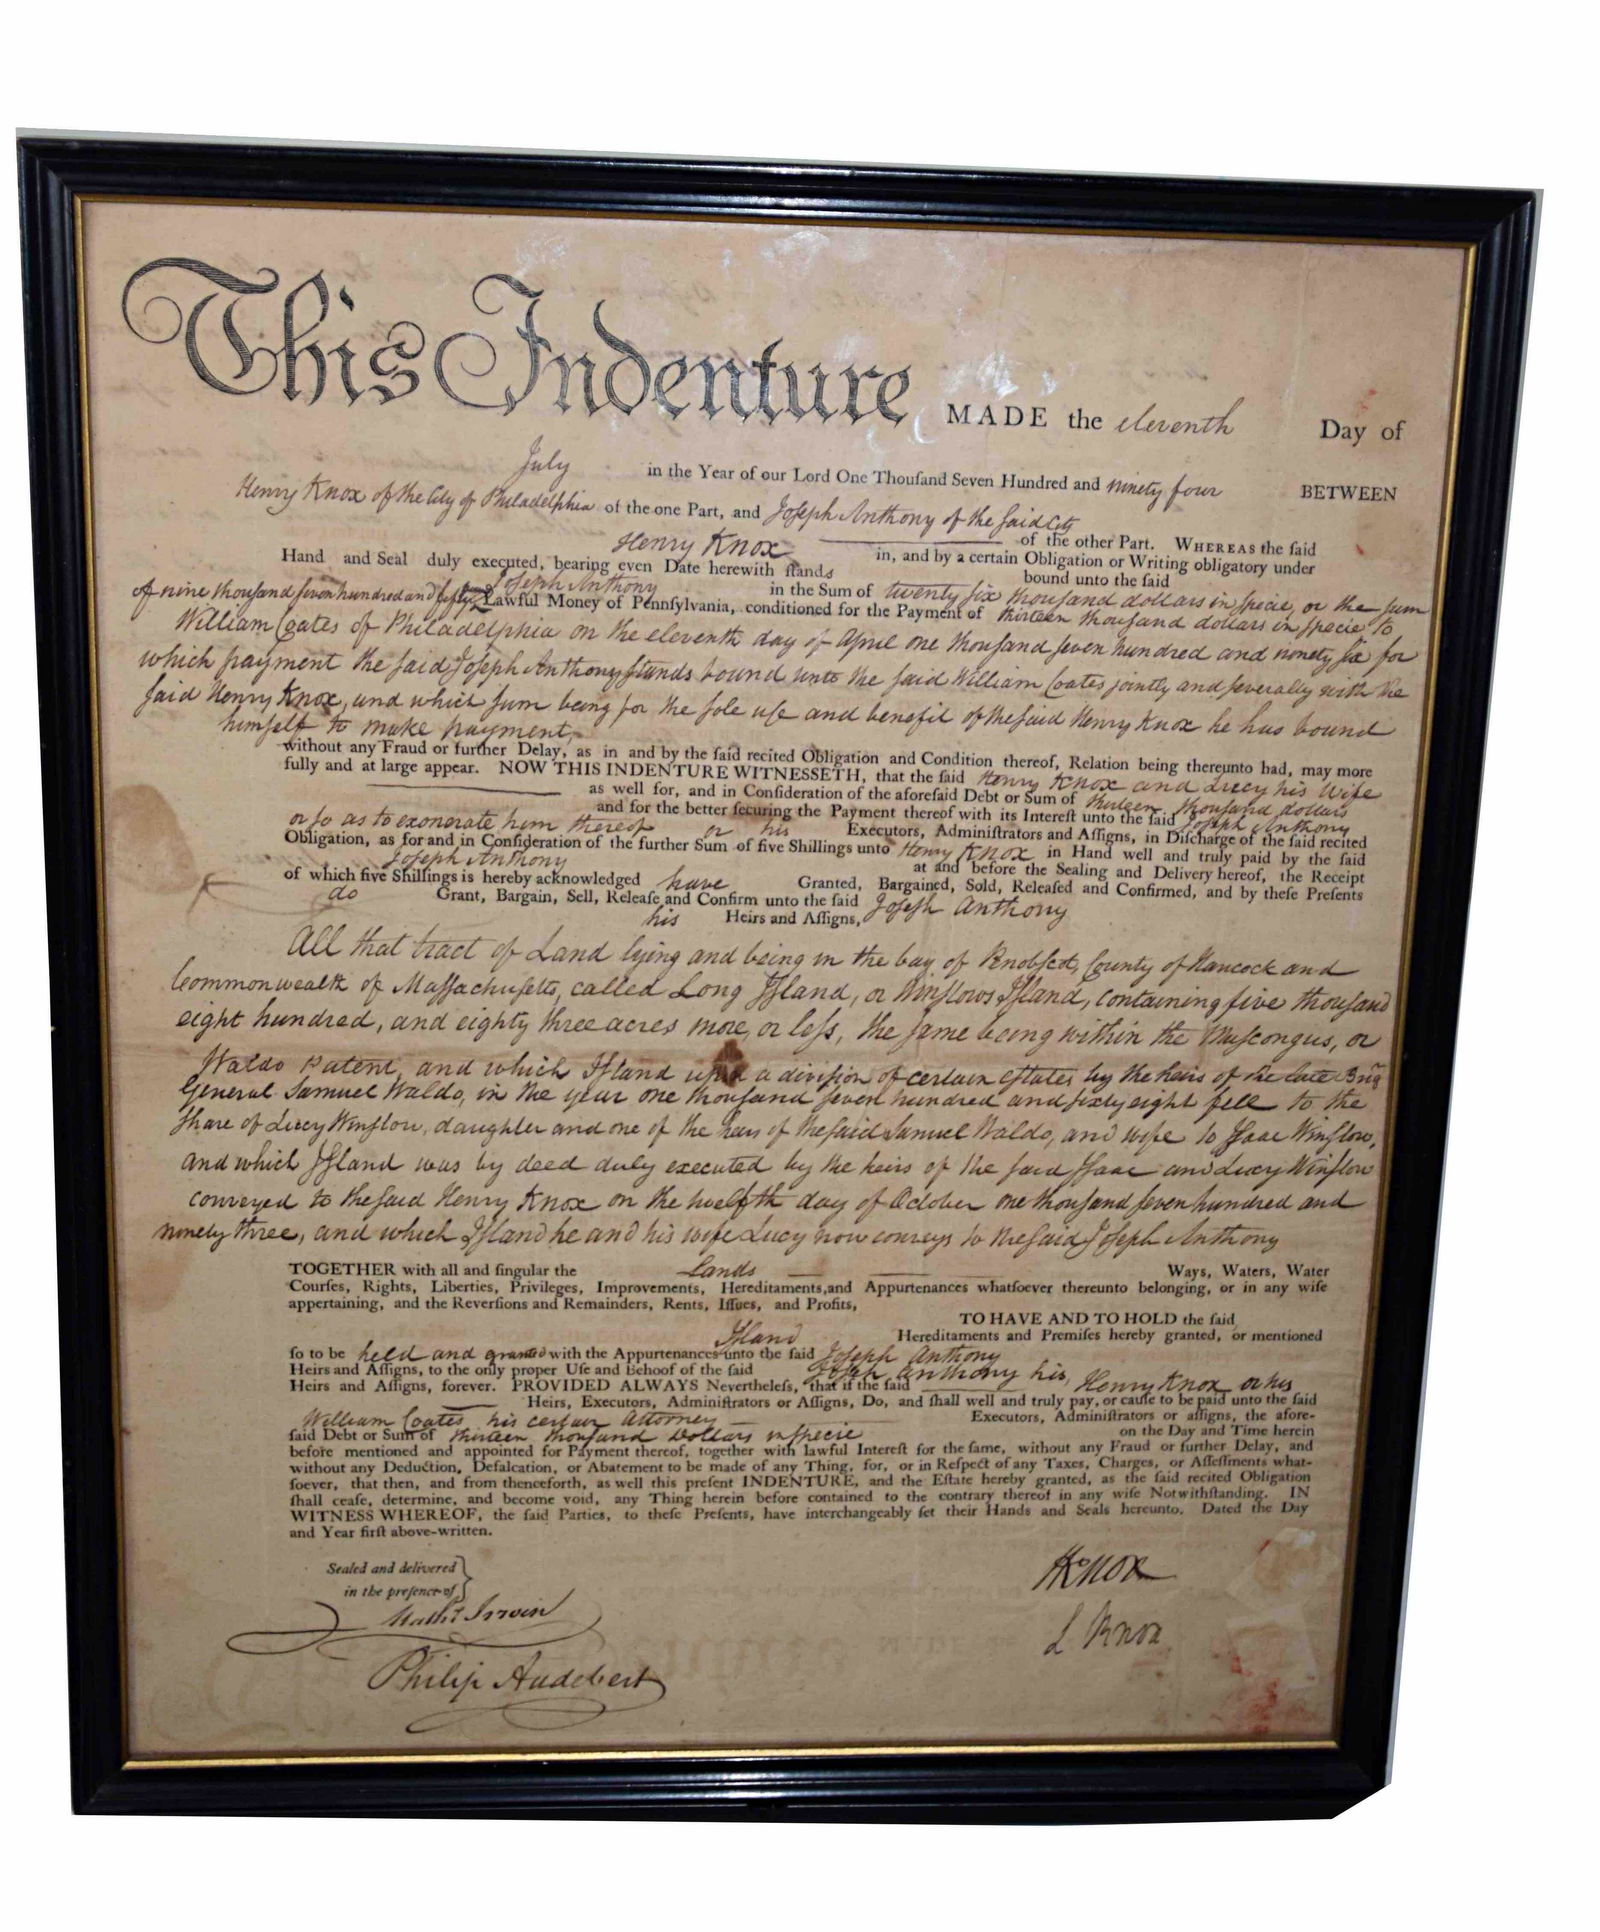 This Indenture MADE the eleventh Day of
July in the Year of our Lord One Thouſand Seven Hundred and ninety four BETWEEN
Henry Knox of the City of Philadelphia of the one Part, and Joſeph Anthony of the ſaid City
of the other Part. WHEREAS the ſaid
Henry Knox in, and by a certain Obligation or Writing obligatory under
Hand and Seal duly executed, bearing even Date herewith ſtands bound unto the ſaid
Joſeph Anthony in the Sum of twenty ſix thouſand dollars in ſpecie, or the ſum
of nine thouſand ſeven hundred and fifty Lawful Money of Pennſylvania, conditioned for the Payment of thirteen thouſand dollars in ſpecie to
William Coates of Philadelphia on the eleventh day of April one thouſand ſeven hundred and ninety ſix for
which payment the ſaid Joſeph Anthony ſtands bound unto the ſaid William Coates jointly and ſeverally with the
ſaid Henry Knox, and which ſum being for the ſole uſe and benefit of the ſaid Henry Knox he has bound
himſelf to make payment,
without any Fraud or further Delay, as in and by the ſaid recited Obligation and Condition thereof, Relation being thereunto had, may more
fully and at large appear. NOW THIS INDENTURE WITNESSETH, that the ſaid Henry Knox and Lucy his Wife
as well for, and in Conſideration of the aforeſaid Debt or Sum of thirteen thouſand dollars
and for the better ſecuring the Payment thereof with its Intereſt unto the ſaid Joſeph Anthony
or ſo as to exonerate him thereof or his Executors, Adminiſtrators and Aſſigns, in Diſcharge of the ſaid recited
Obligation, as for and in Conſideration of the further Sum of five Shillings unto Henry Knox in Hand well and truly paid by the ſaid
Joſeph Anthony at and before the Sealing and Delivery hereof, the Receipt
of which five Shillings is hereby acknowledged have Granted, Bargained, Sold, Releaſed and Confirmed, and by theſe Preſents
do Grant, Bargain, Sell, Releaſe and Confirm unto the ſaid Joſeph Anthony
his Heirs and Aſſigns,
All that tract of Land lying and being in the bay of Penobſcot, County of Hancock and
Commonwealth of Maſſachuſetts, called Long Iſland, or Winſlows Iſland, containing five thouſand
eight hundred, and eighty three acres more, or leſs, the ſame being within the Muſcongus, or
Waldo Patent, and which Iſland upon a diviſion of certain eſtates by the heirs of the late Brig
General Samuel Waldo, in the year one thouſand ſeven hundred and ſixty eight fell to the
ſhare of Lucy Winſlow, daughter and one of the heirs of the ſaid Samuel Waldo, and wife to Iſaac Winſlow,
and which Iſland was by deed duly executed by the heirs of the ſaid Iſaac and Lucy Winſlow
conveyed to the ſaid Henry Knox on the twelfth day of October one thouſand ſeven hundred and
ninety three, and which Iſland he and his wife Lucy now conveys to the ſaid Joſeph Anthony
TOGETHER with all and ſingular the Lands Ways, Waters, Water
Courſes, Rights, Liberties, Privileges, Improvements, Hereditaments, and Appurtenances whatſoever thereunto belonging, or in any wiſe
appertaining, and the Reverſions and Remainders, Rents, Iſſues, and Profits,
TO HAVE AND TO HOLD the ſaid
Iſland Hereditaments and Premiſes hereby granted, or mentioned
ſo to be held and granted with the Appurtenances unto the ſaid Joſeph Anthony
Heirs and Aſſigns, to the only proper Uſe and Behoof of the ſaid Joſeph Anthony his,
Heirs and Aſſigns, forever. PROVIDED ALWAYS Nevertheleſs, that if the ſaid Henry Knox or his
Heirs, Executors, Adminiſtrators or Aſſigns, Do, and ſhall well and truly pay, or cauſe to be paid unto the ſaid
William Coates, his certain Attorney Executors, Adminiſtrators or aſſigns, the afore-
ſaid Debt or Sum of thirteen thouſand Dollars in ſpecie on the Day and Time herein
before mentioned and appointed for Payment thereof, together with lawful Intereſt for the ſame, without any Fraud or further Delay, and
without any Deduction, Defalcation, or Abatement to be made of any Thing, for, or in Reſpect of any Taxes, Charges, or Aſſeſſments what-
ſoever, that then, and from thenceforth, as well this preſent INDENTURE, and the Eſtate hereby granted, as the ſaid recited Obligation
ſhall ceaſe, determine, and become void, any Thing herein before contained to the contrary thereof in any wiſe Notwithſtanding. IN
WITNESS WHEREOF, the ſaid Parties, to theſe Preſents, have interchangeably ſet their Hands and Seals hereunto. Dated the Day
and Year firſt above-written.
Sealed and delivered
in the preſence of
HKnox
Mathw Irwin
L Knox
Philip Audebert